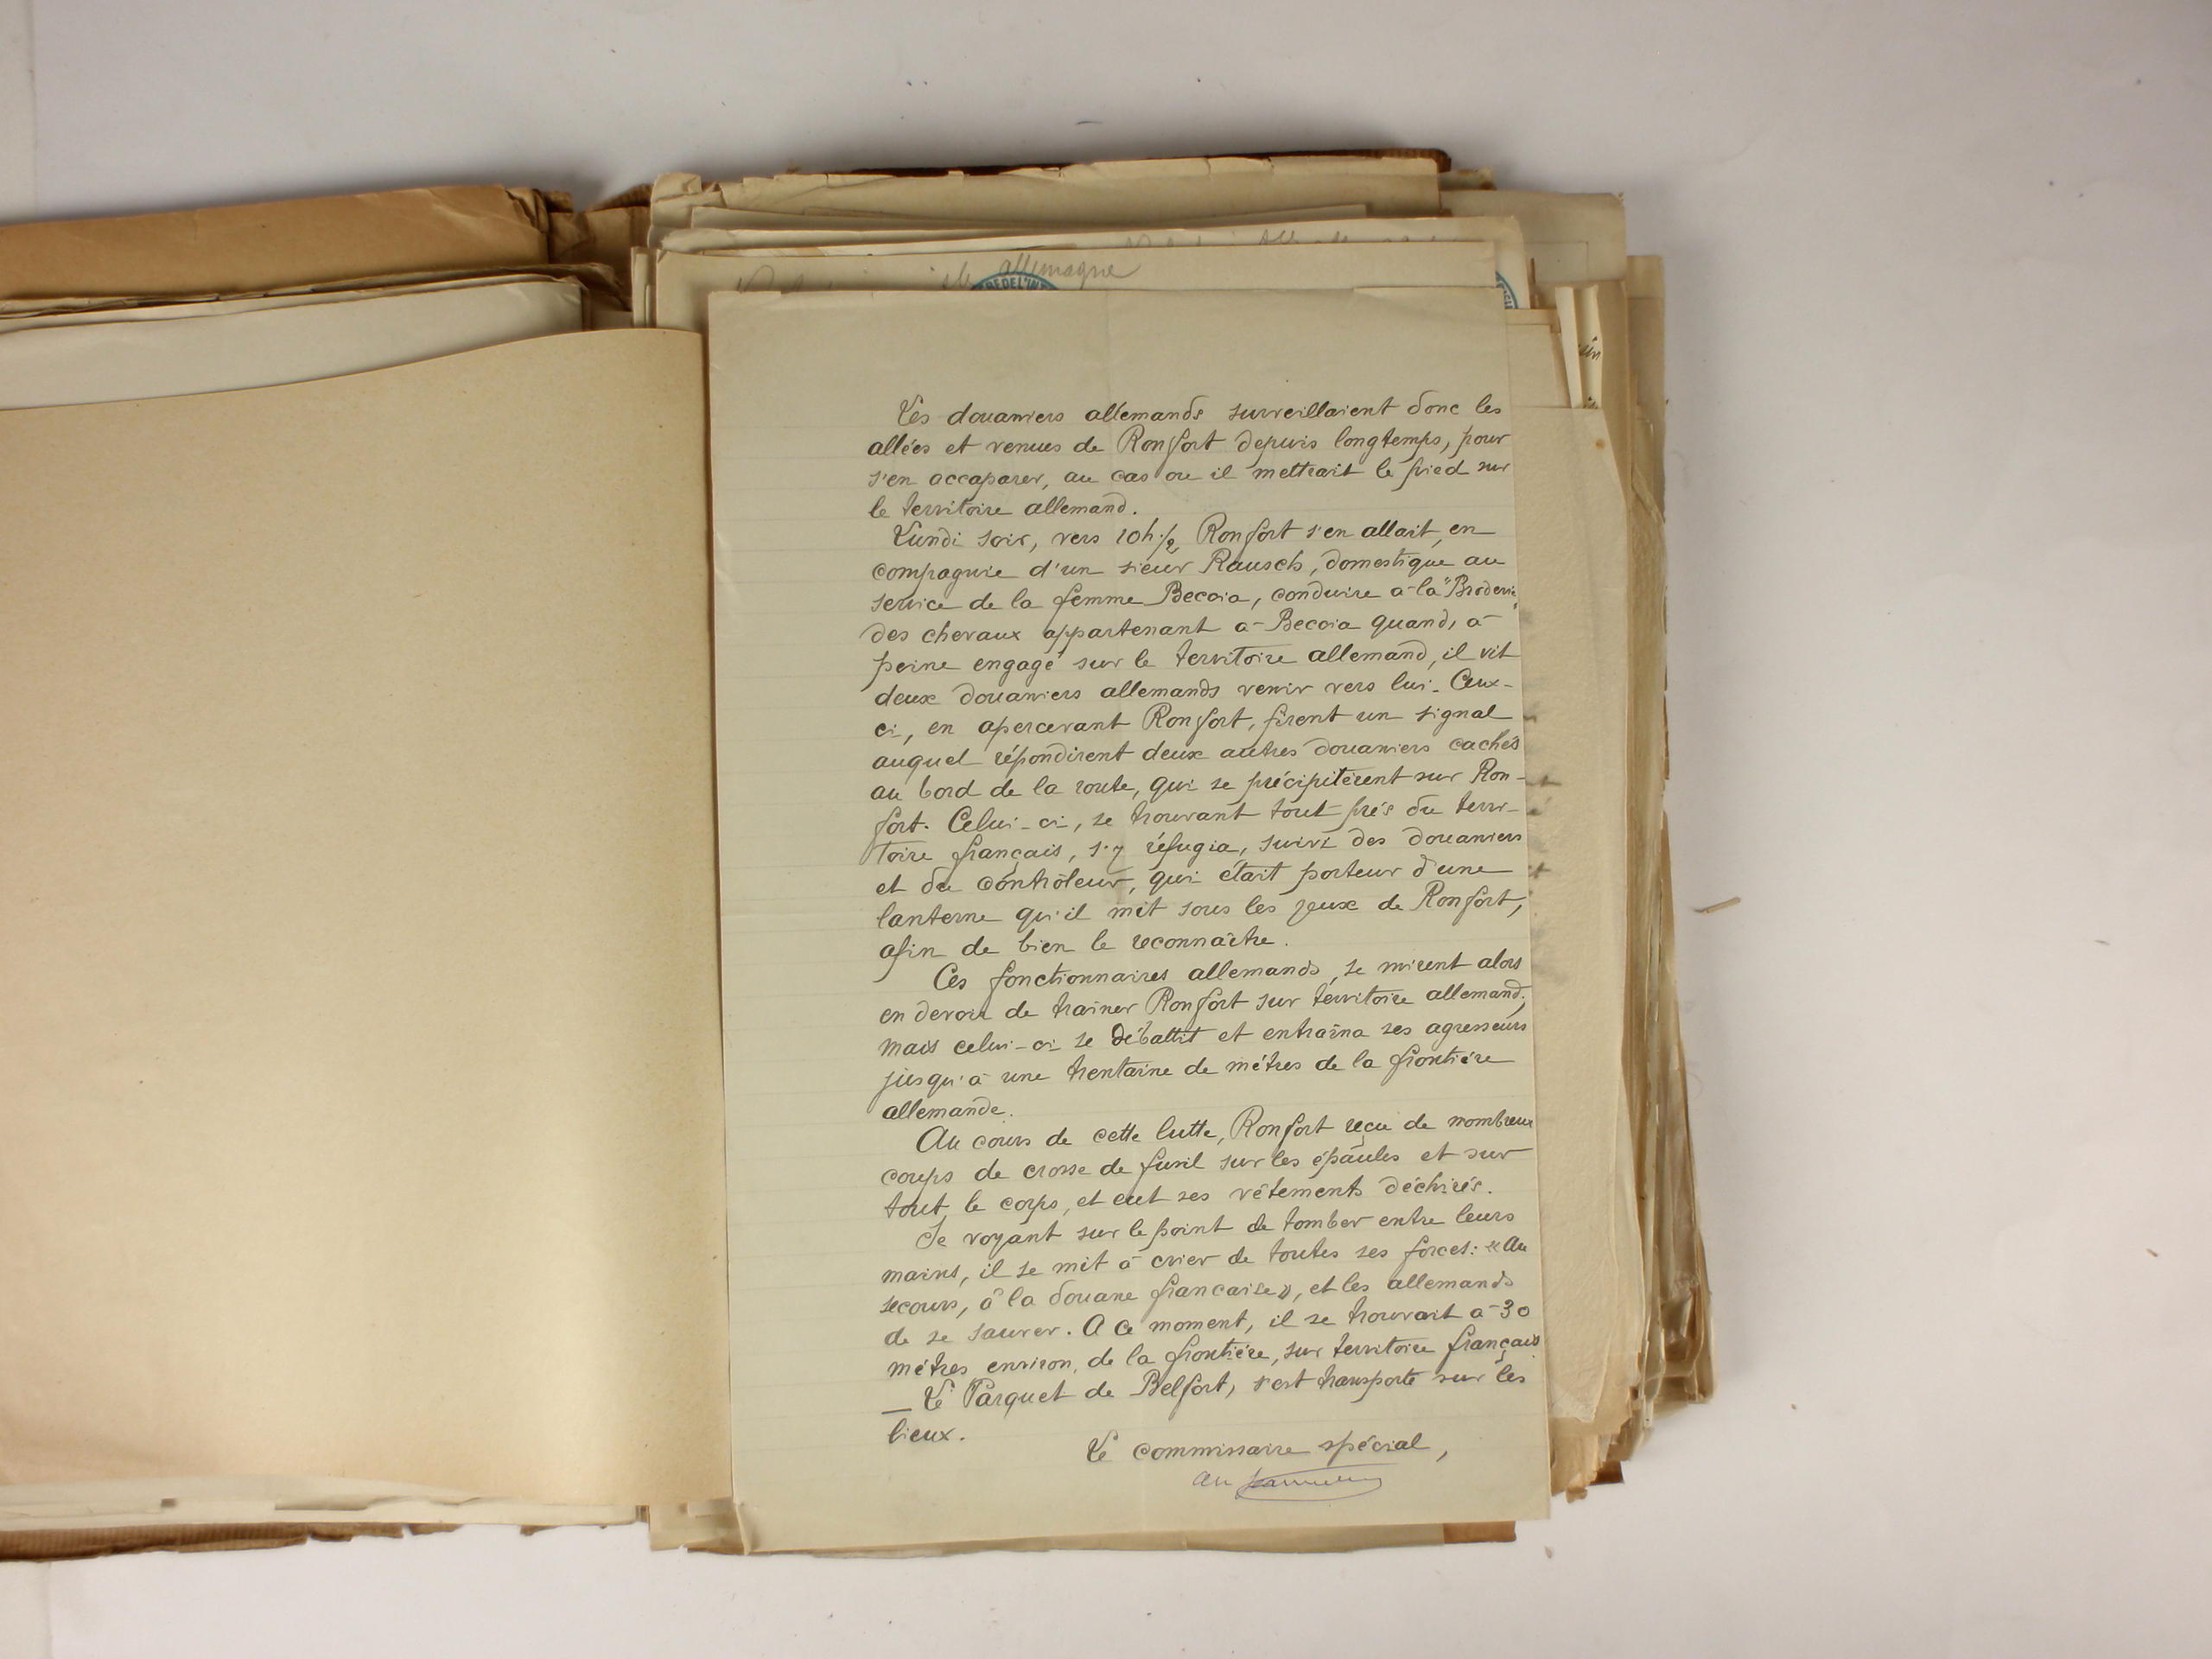 allemagne
RE DE L'IN
Les douaniers allemands surveillaient donc les
allées et venues de Ronfort depuis longtemps, pour
s'en accaparer, au cas ou il mettrait le pied sur
le territoire allemand.
Lundi soir, vers 10h ½ Ronfort s'en allait, en
compagnie d'un sieur Rausch, domestique au
service de la femme Becoia, conduire à la "Broderie"
des chevaux appartenant à Becoia quand, à
peine engagé sur le territoire allemand, il vit
deux douaniers allemands venir vers lui. Ceux-
ci, en apercevant Ronfort, firent un signal
auquel répondirent deux autres douaniers cachés
au bord de la route, qui se précipitèrent sur Ron-
fort. Celui-ci, se trouvant tout près du terri-
toire français, s'y réfugia, suivi des douaniers
et du contrôleur, qui était porteur d'une
lanterne qu'il mit sous les yeux de Ronfort,
afin de bien le reconnaître.
Ces fonctionnaires allemands, se mirent alors
en devoir de traîner Ronfort sur territoire allemand;
mais celui-ci se débattit et entraîna ses agresseurs
jusqu'à une trentaine de mètres de la frontière
allemande.
Au cours de cette lutte, Ronfort reçu de nombreux
coups de crosse de fusil sur les épaules et sur
tout le corps, et eut ses vêtements déchirés.
Se voyant sur le point de tomber entre leurs
mains, il se mit à crier de toutes ses forces: «Au
secours, à la douane francaise», et les allemands
de se sauver. A ce moment, il se trouvait à 30
mètres environ, de la frontière, sur territoire français
— Le Parquet de Belfort, s'est transporté sur les
lieux.
Le commissaire spécial,